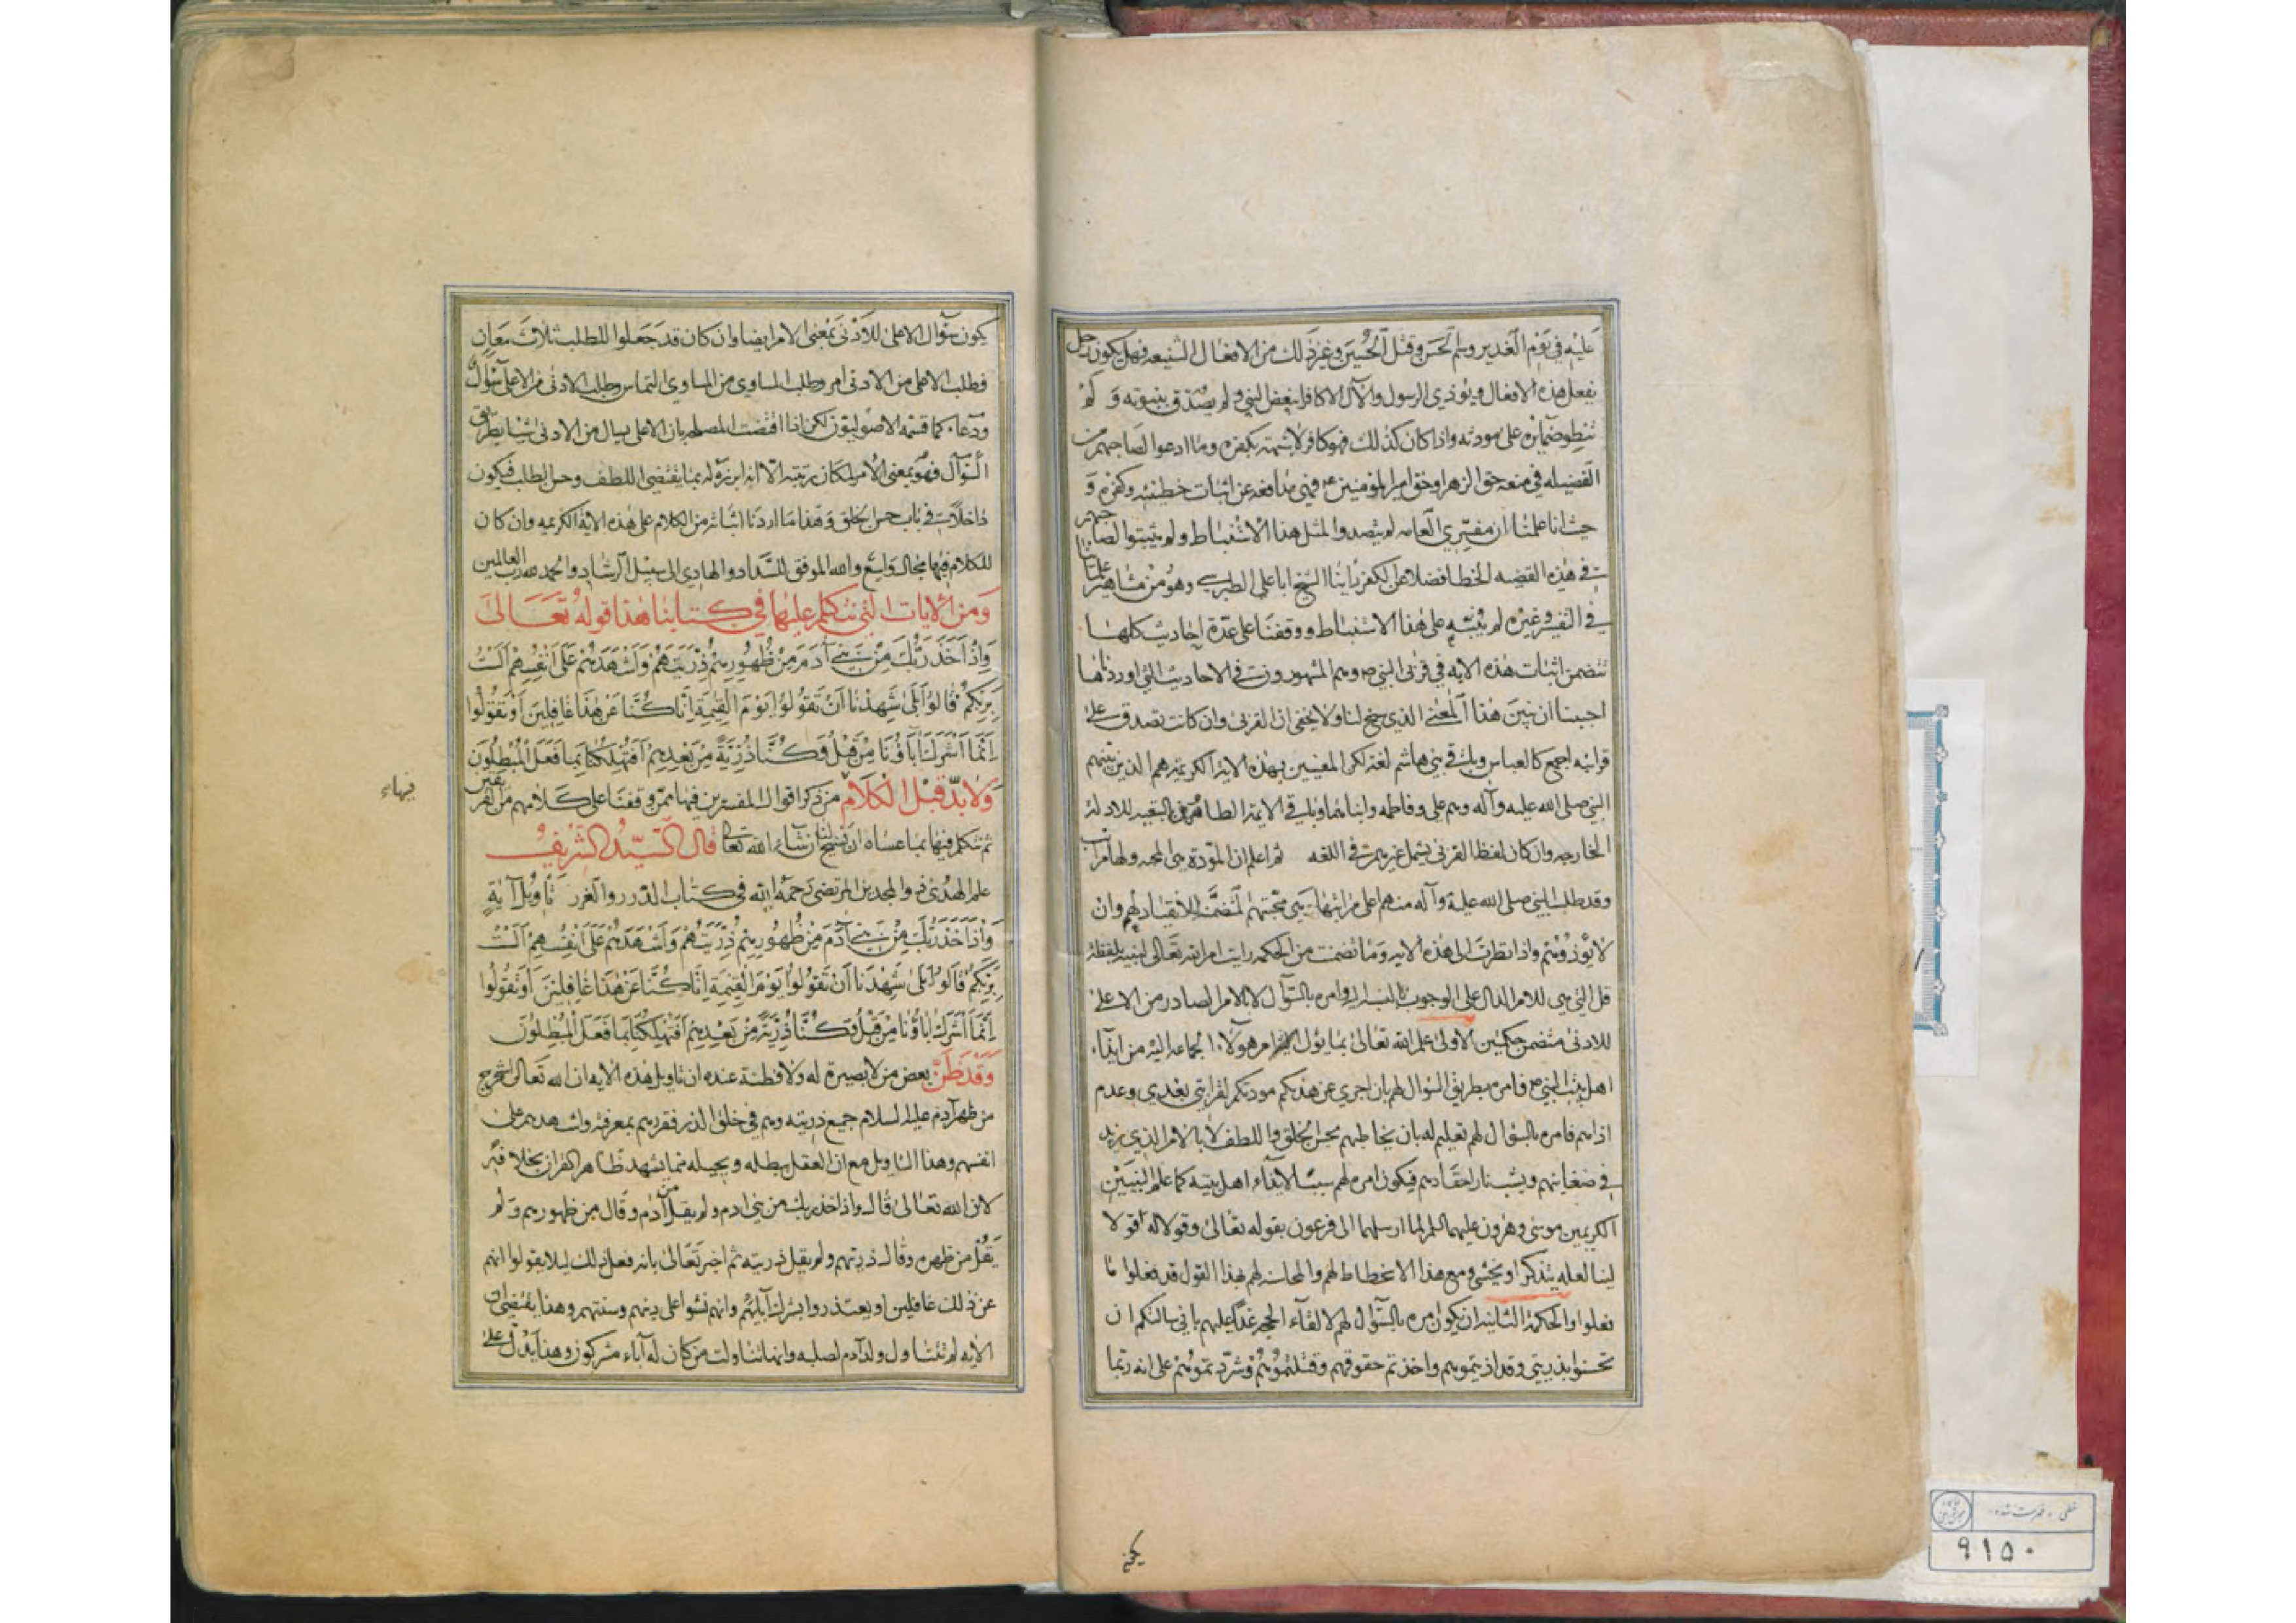 عليه في يوم الغدير وسم الحسن وقتل الحسين وغير ذلك من الافعال الشنيعه فهل يكون رجل
يفعل هذه الافعال ويؤذي الرسول والآل الا كافرا يبغض النبي ولم يصدق بنبوته ولم
تنطو ضمائره على مودته واذا كان كذلك فهو كافر لا شبهة بكفره وما ادعوا لصاحبهم من
الفضيله في منعه حق الزهرا وحق امير المؤمنين ع فهي مدافعه عن اثبات خطيئته وكفره و
حيث انا علمنا ان مفسري العامه لم يتصدوا لمثل هذا الاستنباط ولم يثبتوا لصاحبهم
في هذه القضيه الخطا فضلا عن الكفر راينا الشيخ ابا علي الطبرسي وهو من مشاهير علمائنا
في التفسير وغيره لم ينبه على هذا الاستنباط ووقفنا على عدة احاديث كلها
تتضمن اثبات هذه الايه في قربى النبي ص وهم المشهورون في الاحاديث التي اوردناها
احببنا ان نبين هذا المعنى الذي سنح لنا ولا يخفى ان القربى وان كانت تصدق على
قرابته اجمع كالعباس وباقي بني هاشم لغة لكن المعنيين بهذه الاية الكريمة هم الذين بينهم
النبي صلى الله عليه وآله وهم علي وفاطمه وابناهما وباقي الايمة الطاهرين بالتبعيه للادلة
الخارجه وان كان لفظ القربى يشمل غيرهم في اللغه ثم اعلم ان المودة هي المحبه ولها مراتب
وقد طلب النبي صلى الله عليه وآله منهم اعلى مراتبها وهي محبتهم لتضمن الانقياد لهم وان
لا يؤذوهم واذا نظرت الى هذه الايه وما تضمنت من الحكمه رايت امر الله تعالى لنبيه بلفظة
قل التي هي للامر الدال على الوجوب وامره بالسؤال لا بالامر الصادر من الاعلى
للادنى متضمن حكمتين الاولى علم الله تعالى بما يؤل اليه امر هولاء الجماعه اليه من ايذاء
اهل بيت النبي ص فامره بطريق السؤال لهم بان اجري عن هديكم مودتكم لقرابتي بعدي وعدم
اذاهم فامره بالسؤال لهم تعليم له بان يخاطبهم بحسن الخلق واللطف لا بالامر الذي يزيد
في ضغاينهم ويشب نار احقادهم فيكون امره لهم سببا لايذاء اهل بيته كما علم النبيين
الكريمين موسى وهرون عليهما السلم لما ارسلهما الى فرعون بقوله تعالى وقولا له قولا
لينا لعله يتذكر او يخشى ومع هذا الانحطاط لهم والمحاسنه لهم بهذا القول قد فعلوا ما
فعلوا والحكمة الثانية ان يكون امره بالسؤال لهم لالقاء الحجه غدا عليهم باني سالتكم ان
تحسنوا بذريتي وقد اذيتموهم واخذتم حقوقهم وقتلتموهم وشردتموهم على انه ربما
يكون
يكون سؤال الاعلى للادنى بمعنى الامر ايضا وان كان قد جعلوا للطلب ثلاث معان
فطلب الاعلى من الادنى امر وطلب المساوي من المساوي التماس وطلب الادنى من الاعلى سؤال
ودعاء كما قسمه الاصوليون لكن اذا اقتضت المصلحه بان الاعلى يسال من الادنى شيئا بطريق
السؤال فهو بمعنى الامر لمكان رتبته الا انه ابرزه له بما يقتضي اللطف وحسن الطلب فيكون
داخلا في باب حسن الخلق وهذا ما اردنا اثباته من الكلام على هذه الاية الكريمه وان كان
للكلام فيها مجال واسع والله الموفق للسداد والهادي الى سبيل الرشاد والحمد لله رب العالمين
ومن الايات التي نتكلم عليها في كتابنا هذا قوله تعالى
وَاِذْ اَخَذَ رَبُّكَ مِنْ بَنِي آدَمَ مِنْ ظُهُورِهِمْ ذُرِّيَّتَهُمْ وَاَشْهَدَهُمْ عَلَى اَنْفُسِهِمْ اَلَسْتُ
بِرَبِّكُمْ قَالُوا بَلَى شَهِدْنَا اَنْ تَقُولُوا يَوْمَ الْقِيٰمَةِ اِنَّا كُنَّا عَنْ هٰذَا غَافِلِينَ اَوْ تَقُولُوا
اِنَّمَا اَشْرَكَ آبَاؤُنَا مِنْ قَبْلُ وَكُنَّا ذُرِّيَّةً مِنْ بَعْدِهِمْ اَفَتُهْلِكُنَا بِمَا فَعَلَ الْمُبْطِلُونَ
ولا بد قبل الكلام من ذكر اقوال المفسرين فيها ممن وقفنا على كلامهم من الفريقين
فيهاء
ثم نتكلم فيها بما عساه ان يسنح لنا ان شاء الله تعالى قال السيد الشريف
علم الهدى ذو المجدين المرتضى رحمه الله في كتاب الدرر والغرر تأويل آية
وَاِذْ اَخَذَ رَبُّكَ مِنْ بَنِي آدَمَ مِنْ ظُهُورِهِمْ ذُرِّيَّتَهُمْ وَاَشْهَدَهُمْ عَلَى اَنْفُسِهِمْ اَلَسْتُ
بِرَبِّكُمْ قَالُوا بَلَى شَهِدْنَا اَنْ تَقُولُوا يَوْمَ الْقِيٰمَةِ اِنَّا كُنَّا عَنْ هٰذَا غَافِلِينَ اَوْ تَقُولُوا
اِنَّمَا اَشْرَكَ ابَاؤُنَا مِنْ قَبْلُ وَكُنَّا ذُرِّيَّةً مِنْ بَعْدِهِمْ اَفَتُهْلِكُنَا بِمَا فَعَلَ الْمُبْطِلُونَ
وقد ظن بعض من لا بصيرة له ولا فطنة عنده ان تاويل هذه الايه ان الله تعالى استخرج
من ظهر آدم عليه السلام جميع ذريته وهم في خلق الذر فقررهم بمعرفته واشهدهم على
انفسهم وهذا التاويل مع ان العقل يبطله ويحيله مما يشهد ظاهر القران بخلافه
لان الله تعالى قال واذ اخذ ربك من بني ادم ولم يقل من آدم وقال من ظهورهم ولم
يقل من ظهره وقال ذريتهم ولم يقل ذريته ثم اخبر تعالى بانه فعل ذلك ليلا يقولوا انهم
عن ذلك غافلين او يعتذروا بشرك آبائهم وانهم نشوا على دينهم وسنتهم وهذا يقتضي ان
الايه لم تتناول ولد آدم لصلبه وانما تناولت من كان له آباء مشركون وهذا يدل على
خطى . فهرست شده .
٩١٥٠